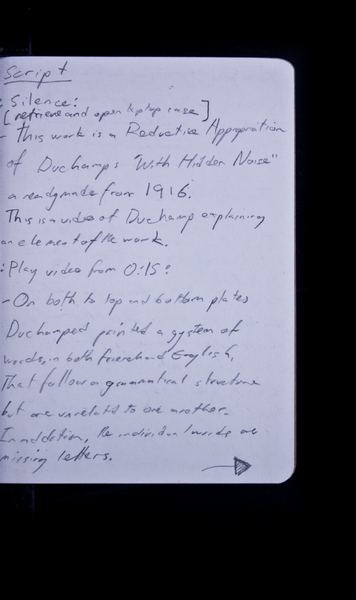 Script
: Silence:
[retrieve and open laptop case]
- This work is a Reductive Appropration
of Duchamps "With Hidden Noise"
a readymade from 1916.
This is a video of Duchamp explaining
an element of the work.
: Play video from 0:15:
- On both to top and bottom plates
Duchamped printed a system of
words, in both french and English,
That follow a grammatical structure
but are unrelatd to one another.
In addition, the individual words are
missing letters.